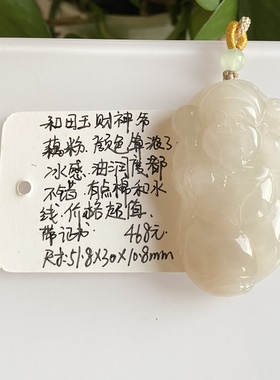 和田玉财神爷
藕粉.颜色算浓了
冰感.油润度都
不错.有点棉和水
线.价格超值.
带证书 468元
尺寸:51.8X30X10.8mm